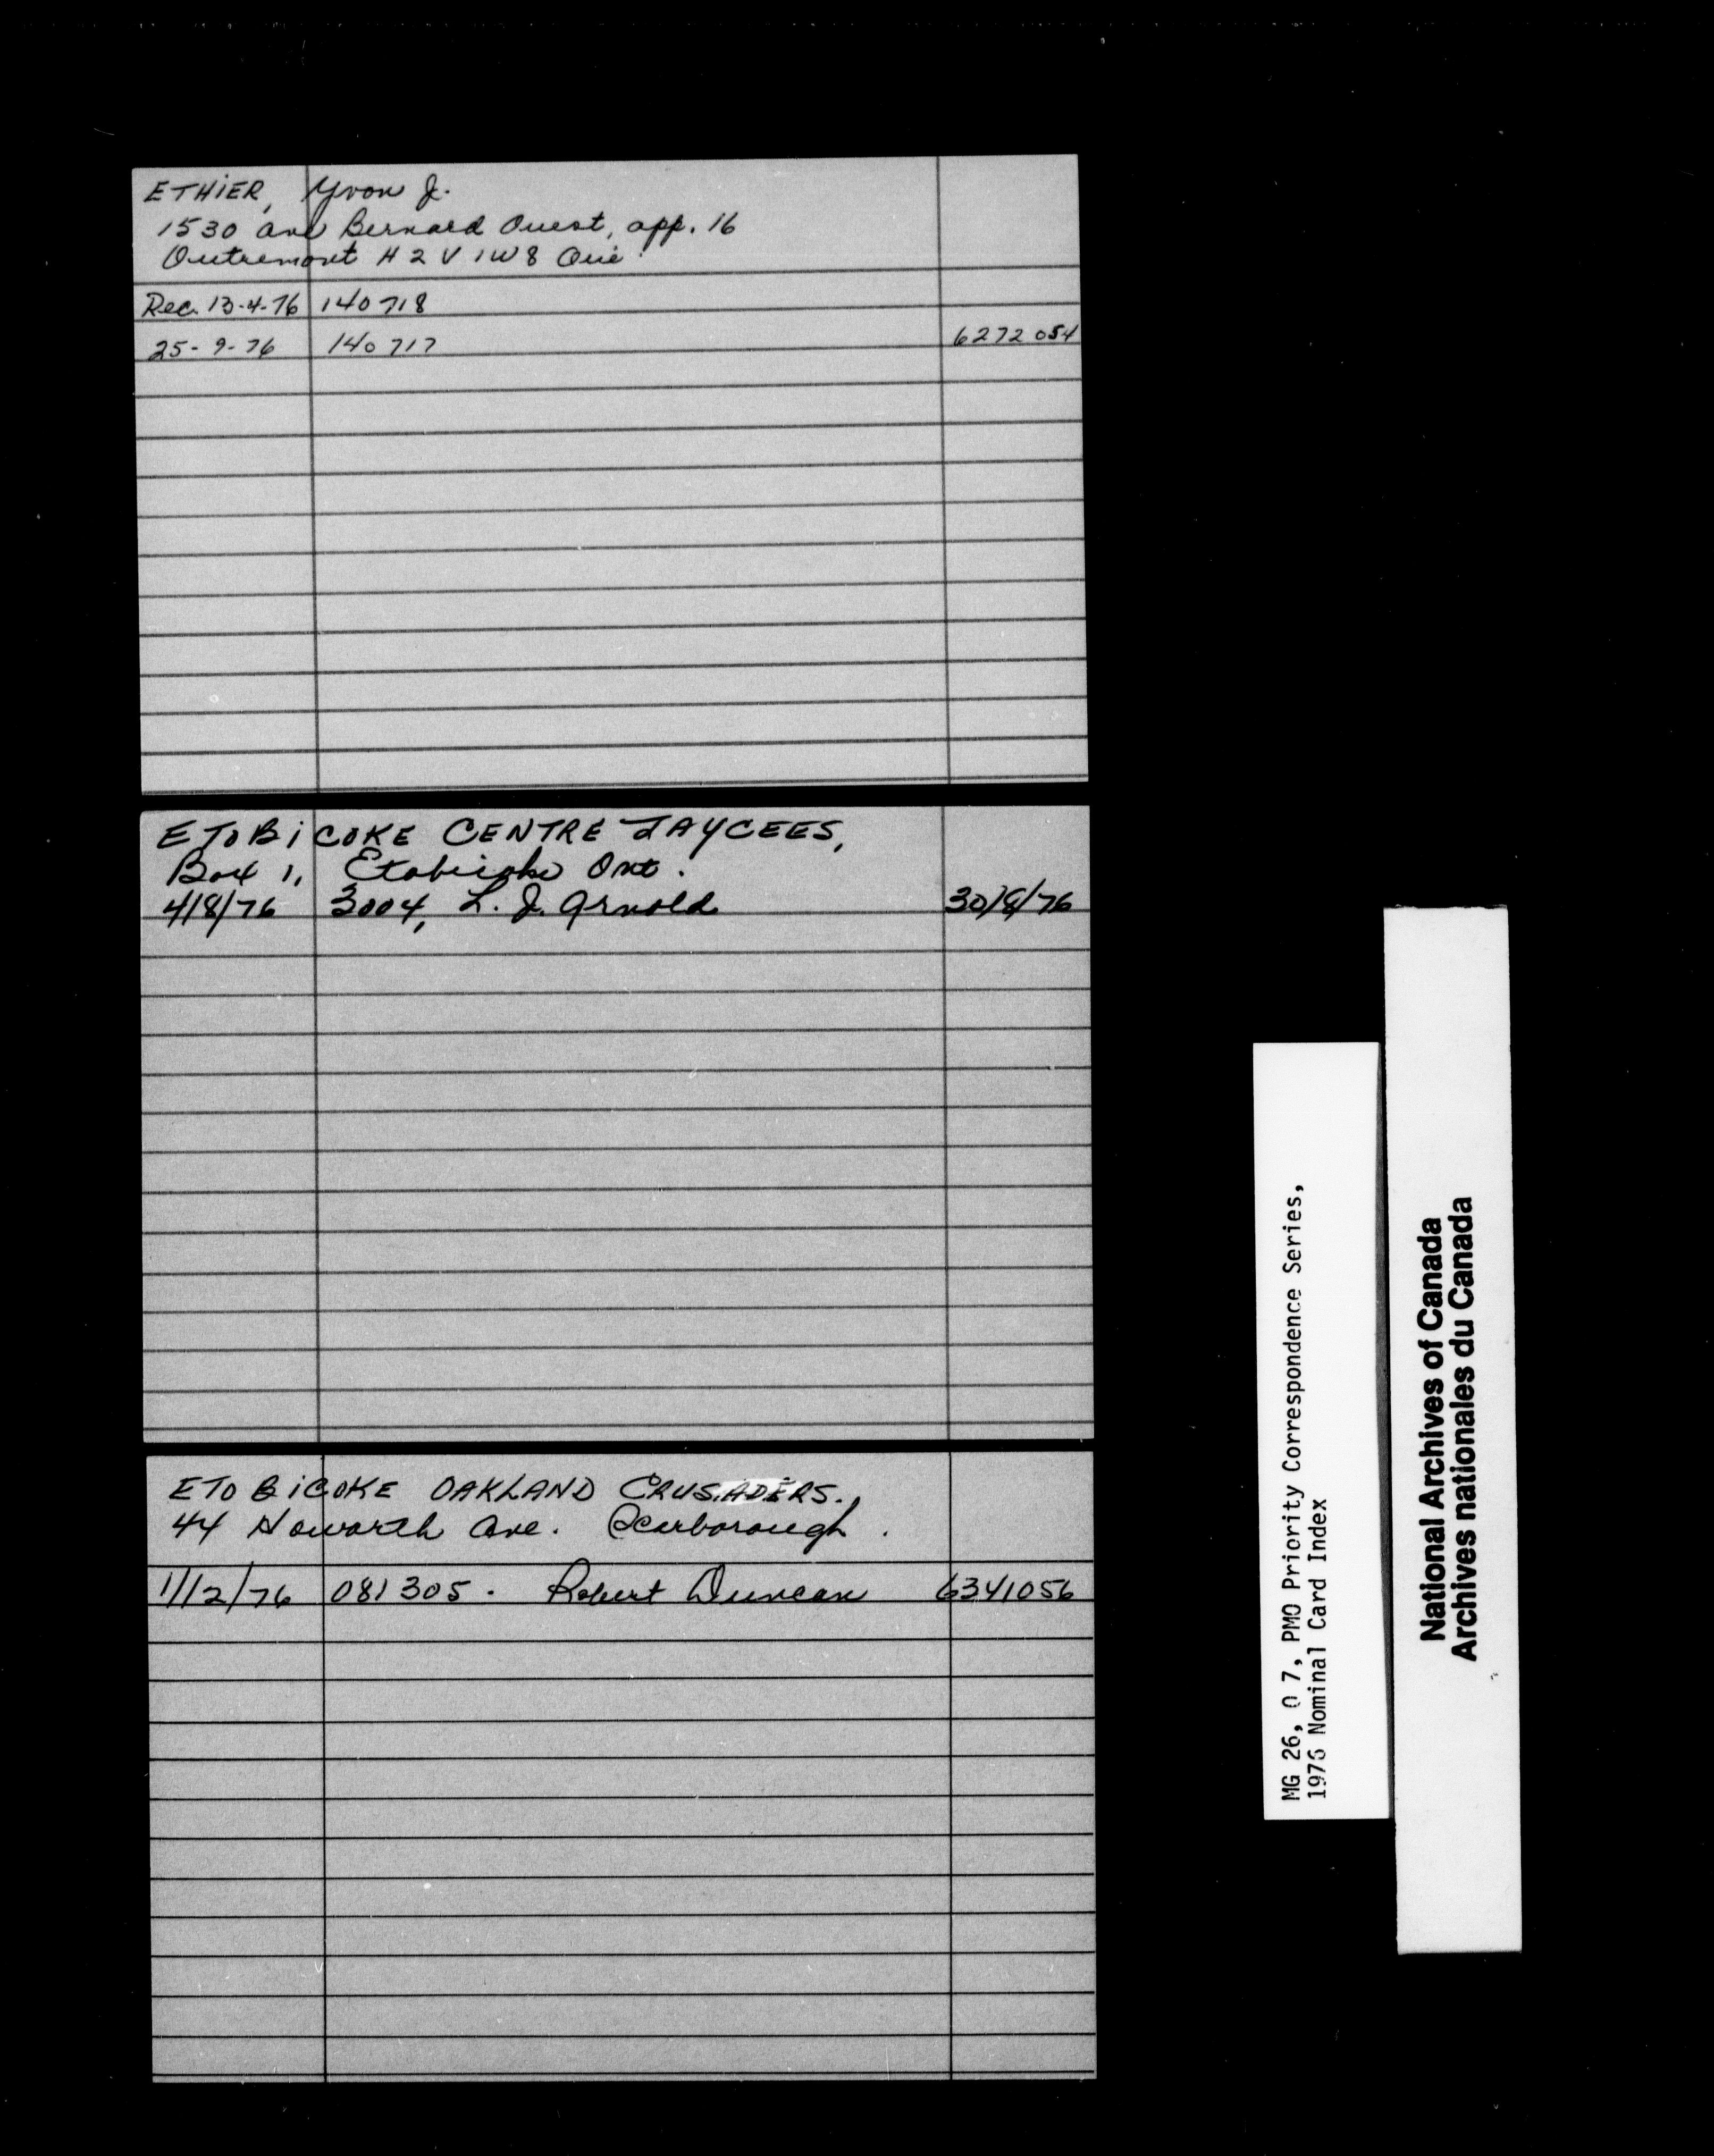 ETHiER, Yvon J.
1530 ave Bernard Ouest, app. 16
Outremont H2V 1W8 Qué
Rec. 13-4-76 140718
25-9-76 140717 6272054
ETOBiCOKE CENTRE JAYCEES,
Box 1, Etobicoke Ont.
4/8/76 3004, L. J. Arnold 30/8/76
ETOBiCOKE OAKLAND CRUSADERS.
44 Howarth Ave. Scarborough.
1/12/76 081305. Robert Duncan 6341056
MG 26, O 7, PMO Priority Correspondence Series,
1976 Nominal Card Index
National Archives of Canada
Archives nationales du Canada